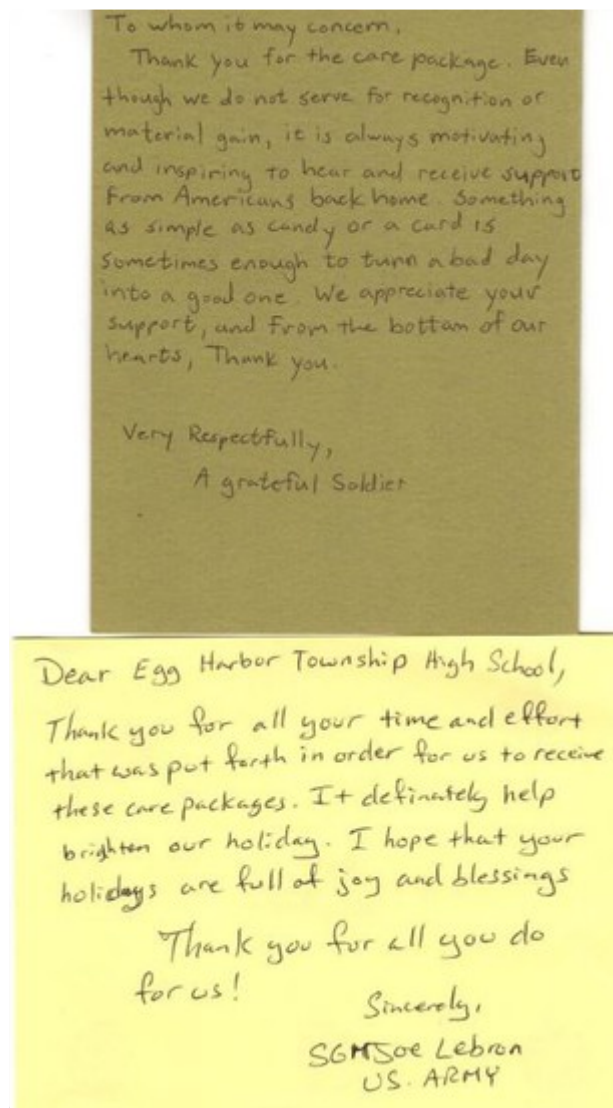 To whom it may concern,
Thank you for the care package. Even
though we do not serve for recognition or
material gain, it is always motivating
and inspiring to hear and receive support
from Americans back home. Something
as simple as candy or a card is
sometimes enough to turn a bad day
into a good one. We appreciate your
support, and from the bottom of our
hearts, Thank you.
Very Respectfully,
A grateful Soldier
Dear Egg Harbor Township High School,
Thank you for all your time and effort
that was put forth in order for us to receive
these care packages. It definately help
brighten our holiday. I hope that your
holidays are full of joy and blessings
Thank you for all you do
for us!
Sincerely,
SGM Joe Lebron
US. ARMY